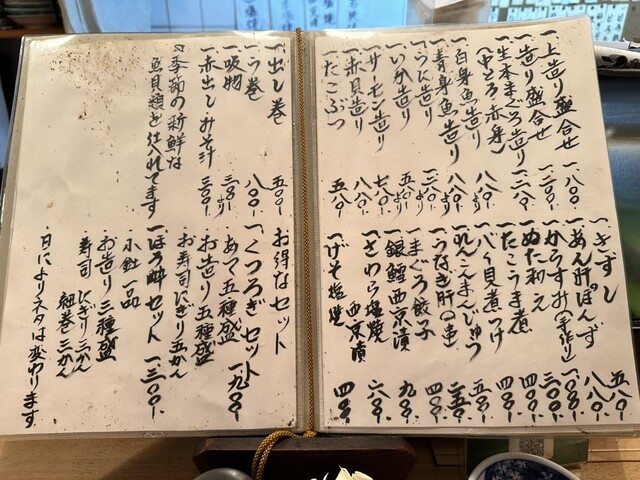 一上造り盛合せ 一八〇〇.
一造り盛合せ 一二〇〇.
一生本まぐろ造り
(中とろ 赤身) 一二八〇.
一白身魚造り 八八〇.より
一青身魚造り 八八〇.より
一うに造り 一三八〇.より
一いか造り 五八〇.より
一サーモン造り 七八〇.
一赤貝造り 八八〇.
一たこぶつ 五八〇.
一きずし 五八〇.
一あん肝ぽんず 八八〇.
一からすみ(手作り) 一〇〇〇.
一ぬた和え
一たこうま煮
一バイ貝煮つけ
一れんこんまんじゅう 五〇〇.
一うなぎ肝の串
一まぐろ餃子
一銀鱈西京漬 九〇〇.
一さわら塩焼
西京漬 六八〇.
一げそ塩焼
一出し巻 五〇〇.
一う巻 八〇〇.
一吸物 三〇〇.より
一赤出しみそ汁 三〇〇.
※季節の新鮮な
魚貝類を仕入れてます
お得なセット
一くつろぎセット 一九〇〇.
あて五種盛
お造り五種盛
お寿司にぎり五かん
一ほろ酔セット 一三〇〇.
・小鉢一品
・お造り三種盛
・寿司 にぎり三かん
細巻三かん
・日によりネタは変わります